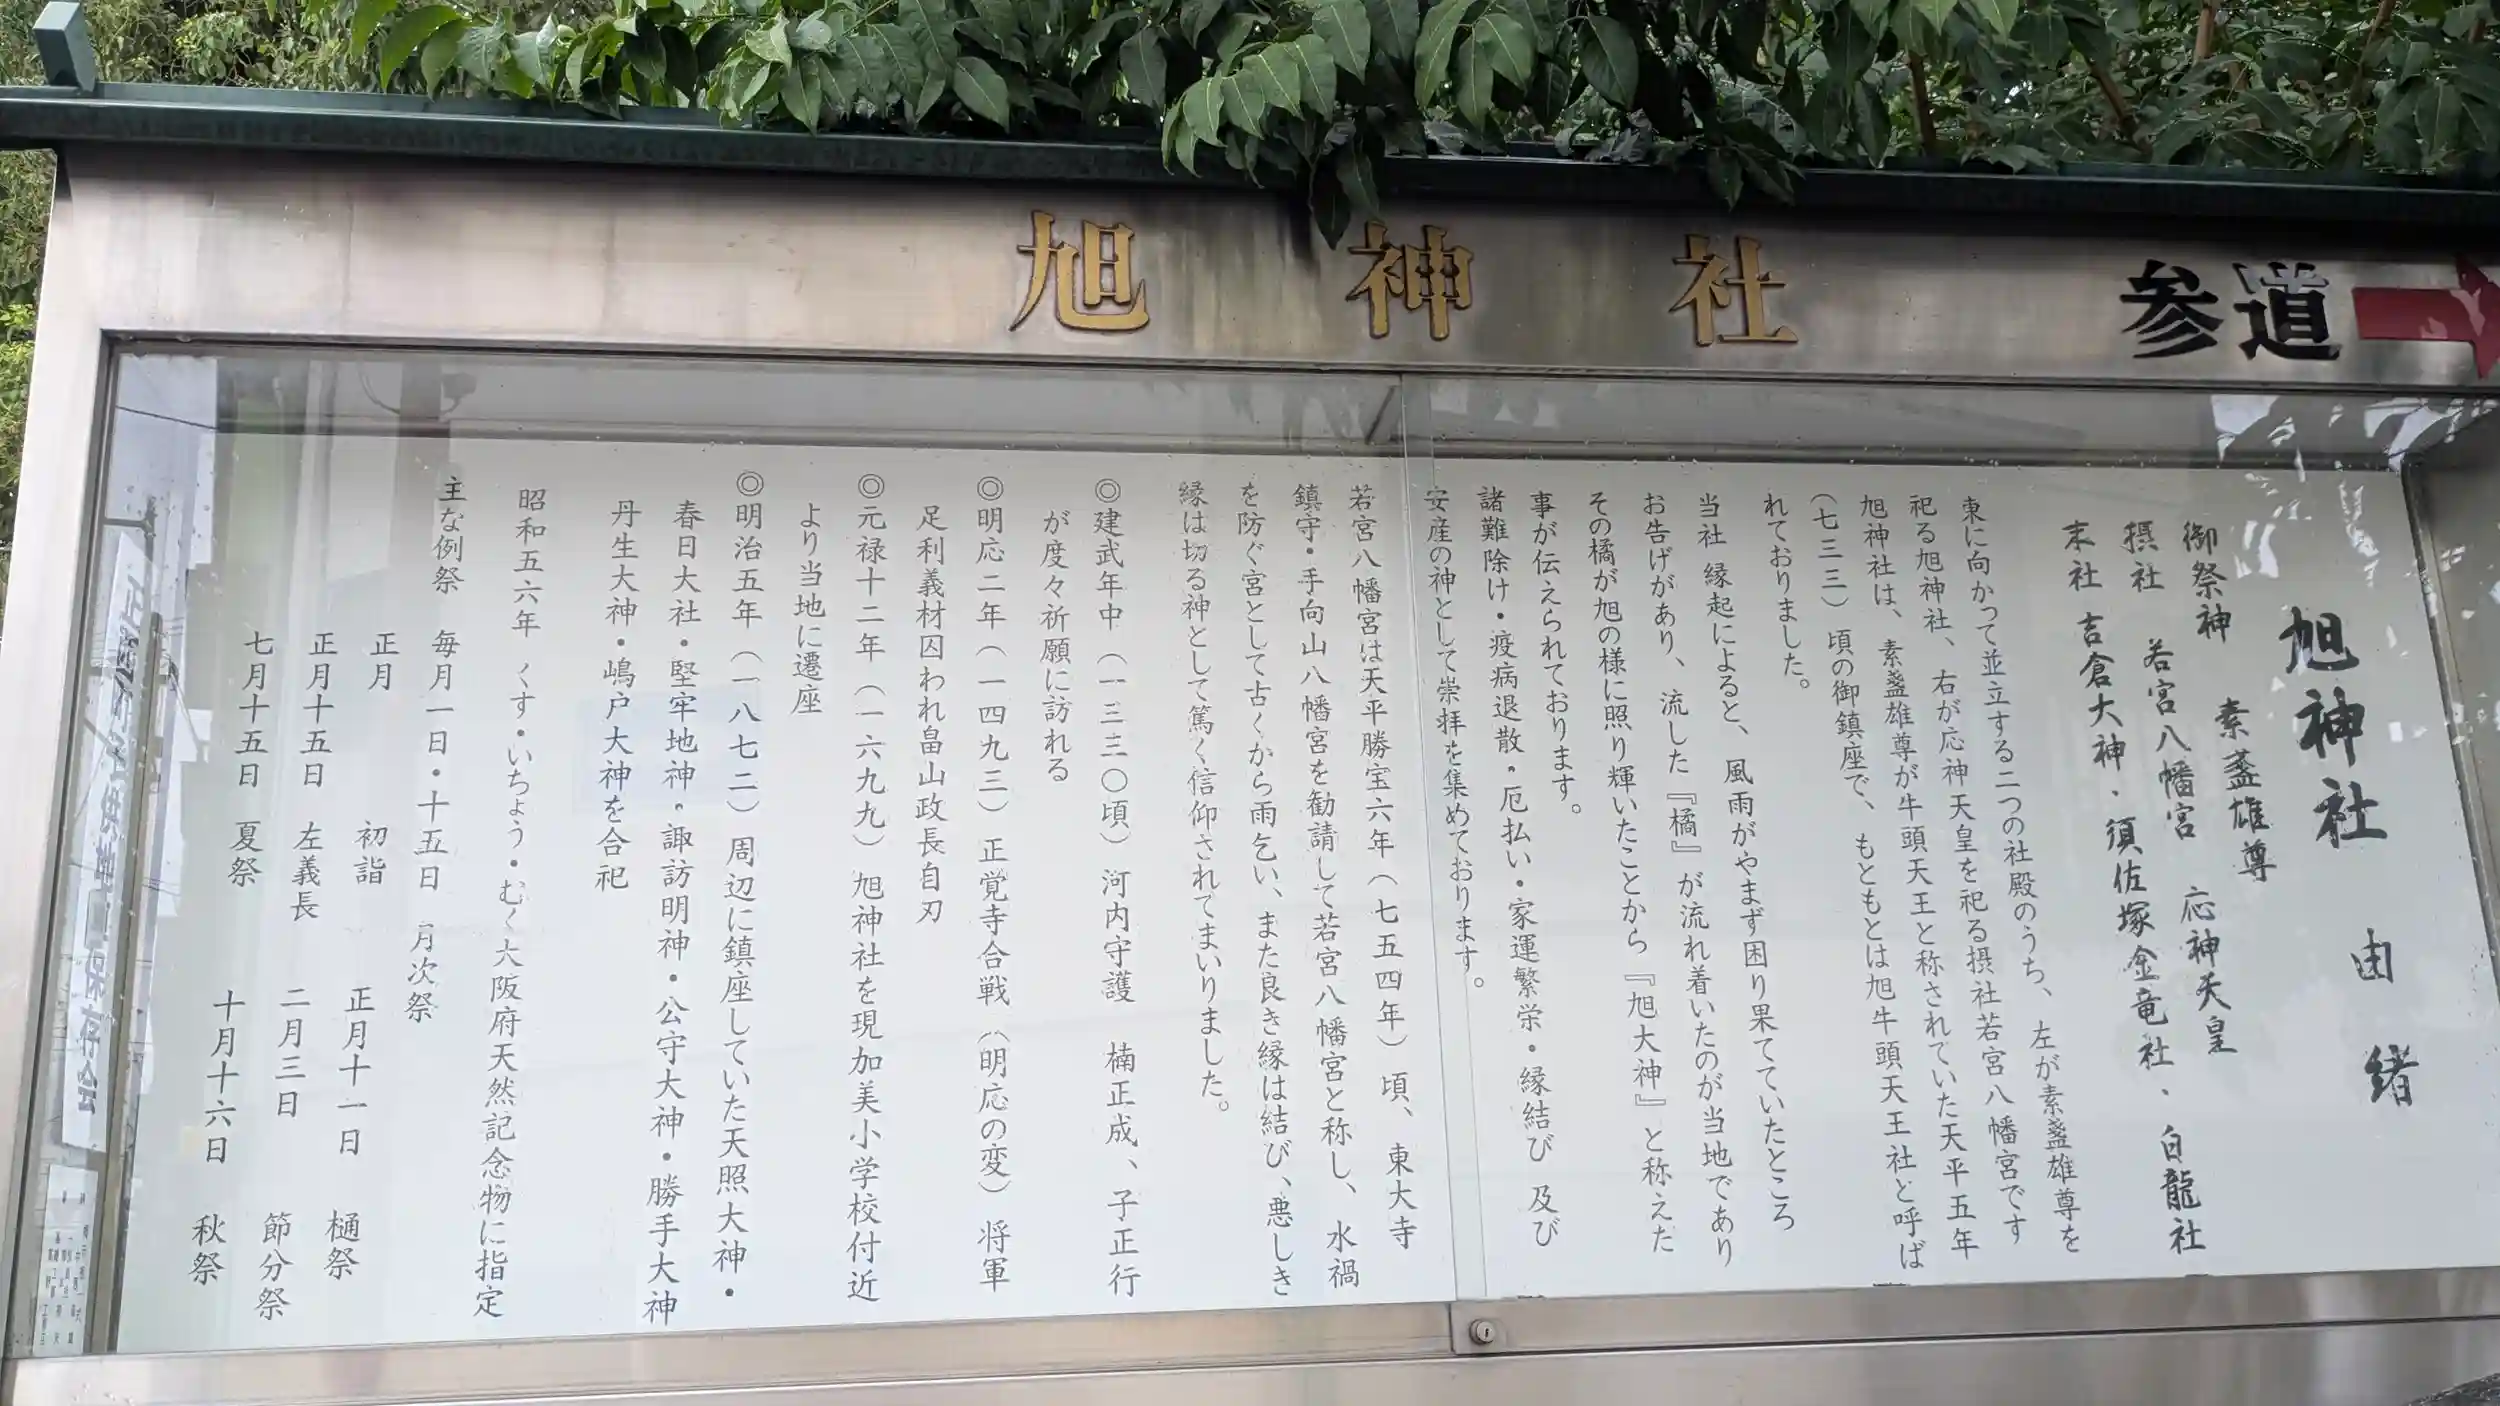 旭神社
参道
旭神社 由緒
御祭神 素盞雄尊
摂社 若宮八幡宮 応神天皇
末社 吉倉大神・須佐塚金竜社・白龍社
東に向かって並立する二つの社殿のうち、左が素盞雄尊を
祀る旭神社、右が応神天皇を祀る摂社若宮八幡宮です
旭神社は、素盞雄尊が牛頭天王と称されていた天平五年
(七三三)頃の御鎮座で、もともとは旭牛頭天王社と呼ば
れておりました。
当社 縁起によると、風雨がやまず困り果てていたところ
お告げがあり、流した『橘』が流れ着いたのが当地であり
その橘が旭の様に照り輝いたことから『旭大神』と称えた
事が伝えられております。
諸難除け・疫病退散・厄払い・家運繁栄・縁結び 及び
安産の神として崇拝を集めております。
若宮八幡宮は天平勝宝六年(七五四年)頃、東大寺
鎮守・手向山八幡宮を勧請して若宮八幡宮と称し、水禍
を防ぐ宮として古くから雨乞い、また良き縁は結び、悪しき
縁は切る神として篤く信仰されてまいりました。
◎建武年中(一三三〇頃)河内守護 楠正成、子正行
が度々祈願に訪れる
◎明応二年(一四九三)正覚寺合戦(明応の変)将軍
足利義材囚われ畠山政長自刃
◎元禄十二年(一六九九)旭神社を現加美小学校付近
より当地に遷座
◎明治五年(一八七二)周辺に鎮座していた天照大神・
春日大社・堅牢地神・諏訪明神・公守大神・勝手大神
丹生大神・嶋戸大神を合祀
昭和五六年 くす・いちょう・むく大阪府天然記念物に指定
主な例祭 毎月一日・十五日 月次祭
正月 初詣 正月十一日 樋祭
正月十五日 左義長 二月三日 節分祭
七月十五日 夏祭 十月十六日 秋祭
保存会